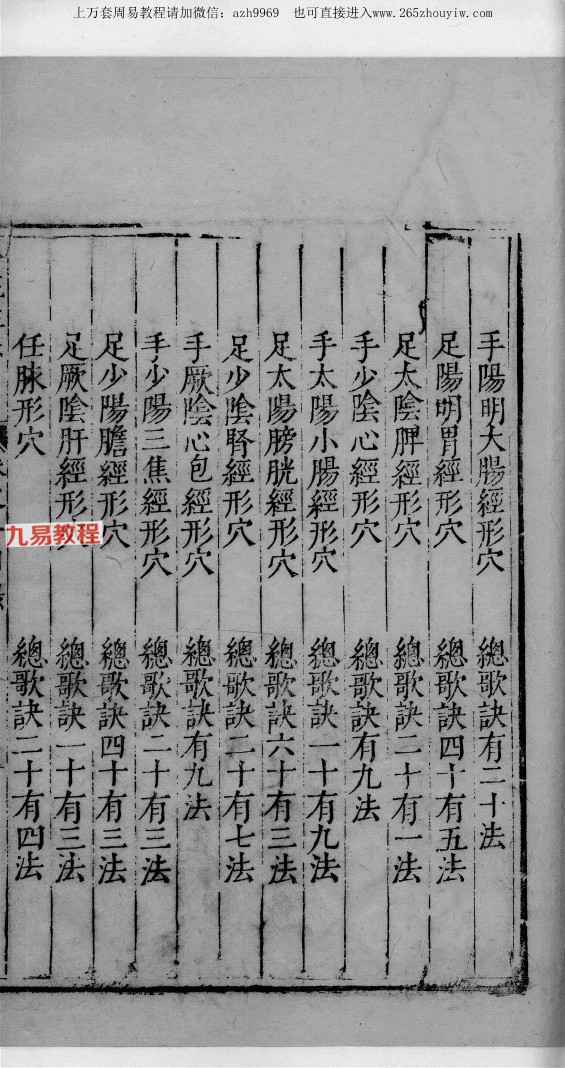 上万套周易教程请加微信：azh9969　也可直接进入www.265zhouyiw.com
手陽明大腸經形穴　總歌訣有二十法
足陽明胃經形穴　總歌訣四十有五法
足太陰脾經形穴　總歌訣二十有一法
手少陰心經形穴　總歌訣有九法
手太陽小腸經形穴　總歌訣一十有九法
足太陽膀胱經形穴　總歌訣六十有三法
足少陰腎經形穴　總歌訣二十有七法
手厥陰心包經形穴　總歌訣有九法
手少陽三焦經形穴　總歌訣二十有三法
足少陽膽經形穴　總歌訣四十有三法
足厥陰肝經形　總歌訣一十有三法
任脉形穴　總歌訣二十有四法
九易教程